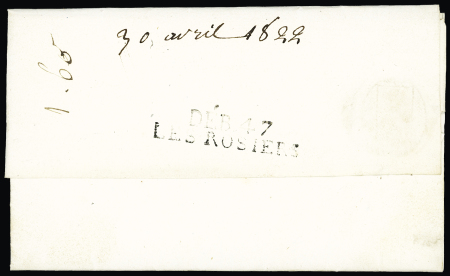 30 avril 1822
1.60
DEB. 47
LES ROSIERS